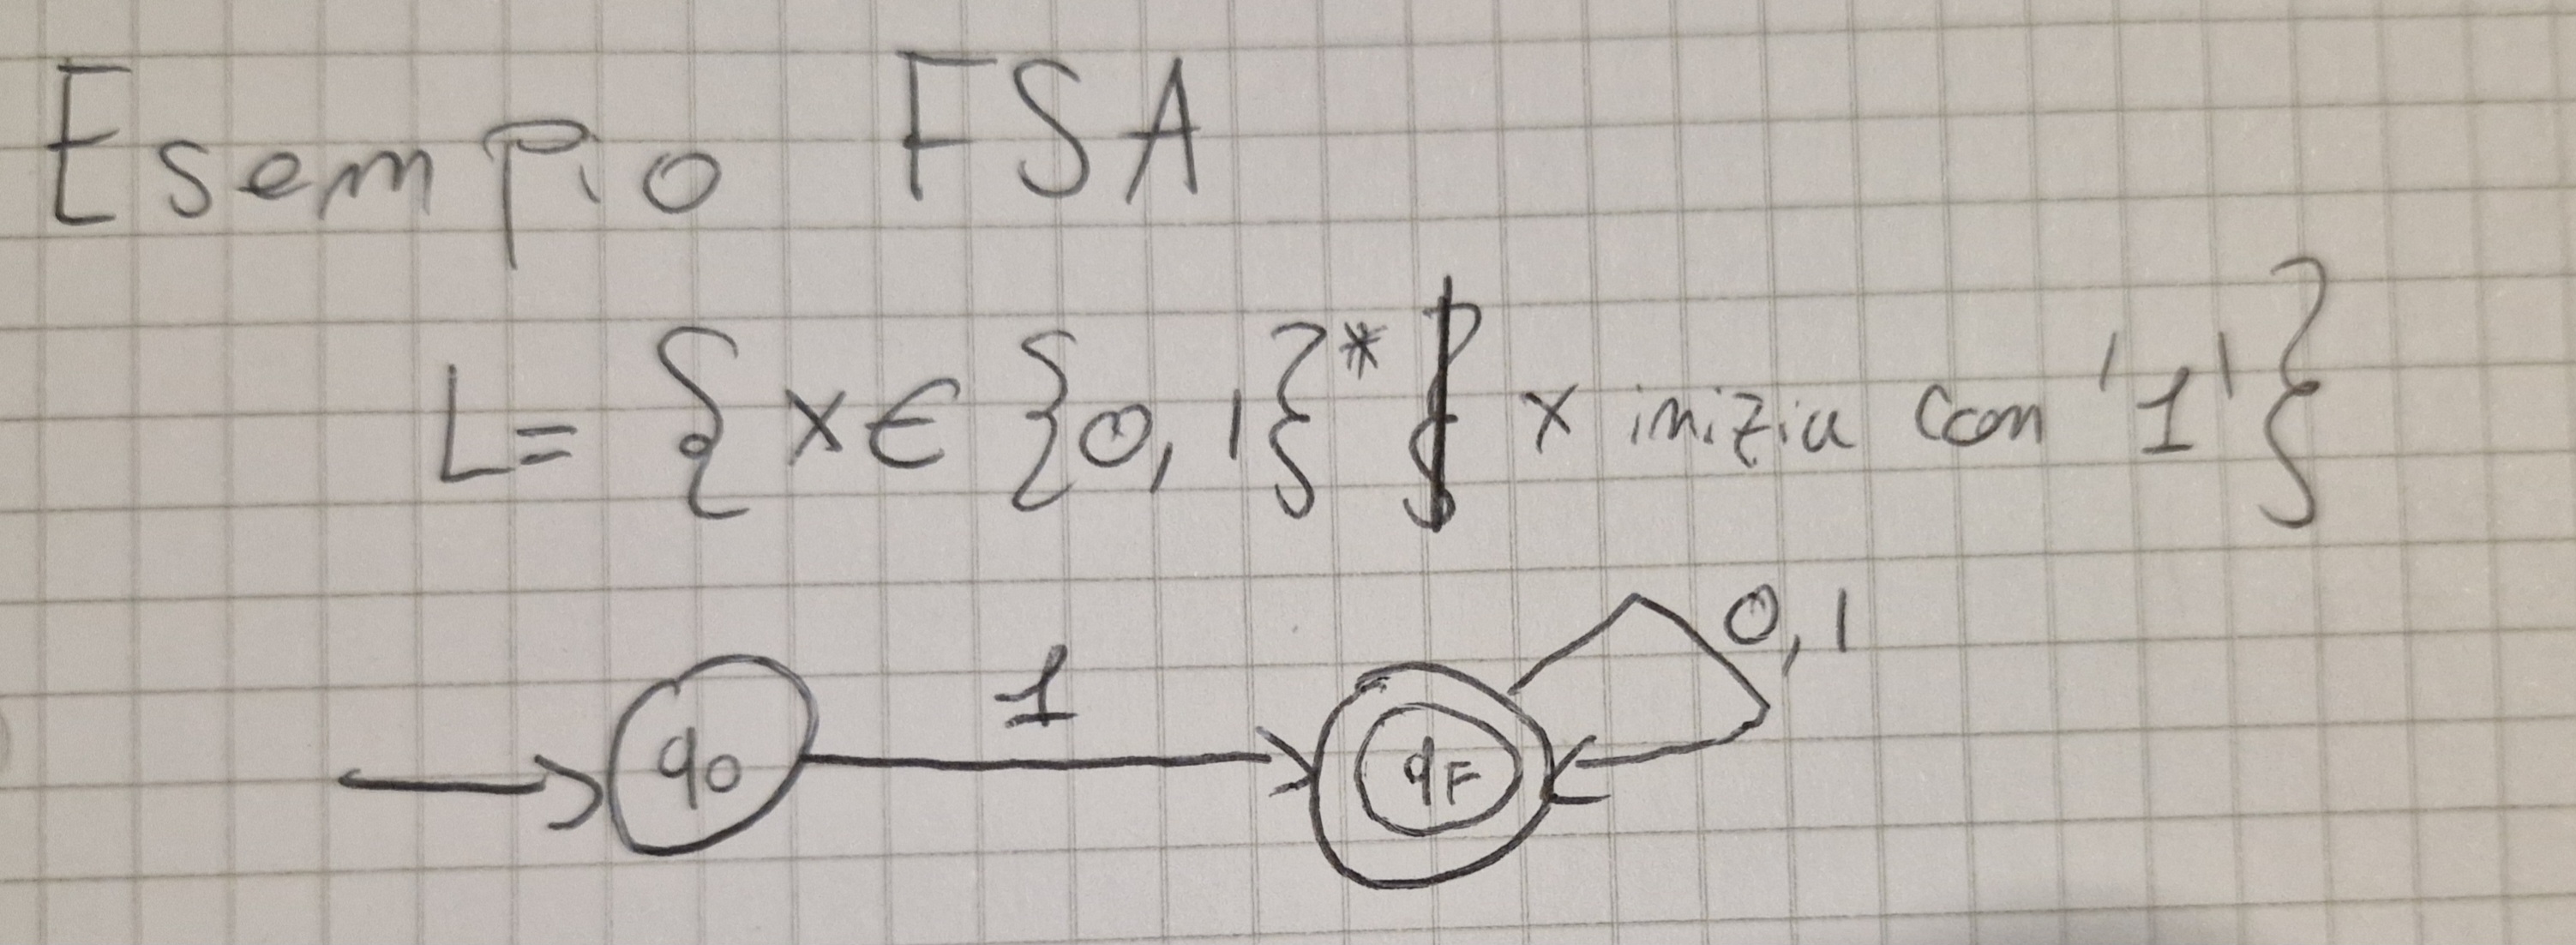 Esempio FSA
L = { x ∈ {0, 1}* | x inizia con '1' }
1 0, 1
q0 qF